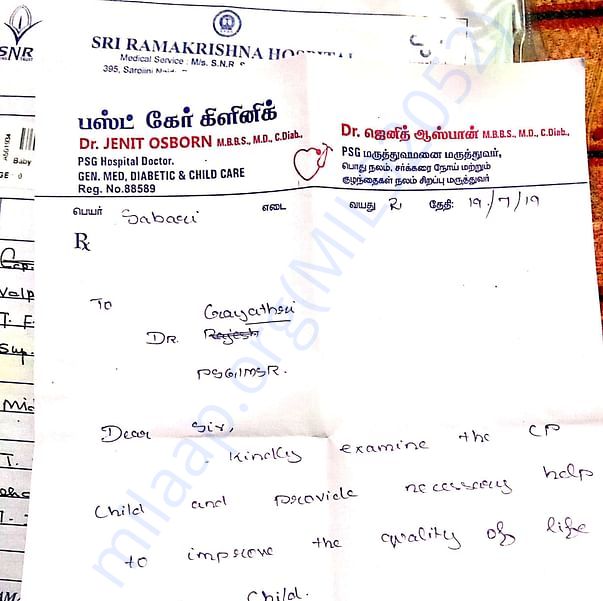 SNR
SRI RAMAKRISHNA HOSPITAL
Medical Service : M/s. S.N.R
395, Sarojini Naidu
Baby
பஸ்ட் கேர் கிளினிக்
Dr. JENIT OSBORN M.B.B.S., M.D., C.Diab.,
PSG Hospital Doctor.
GEN. MED, DIABETIC & CHILD CARE
Reg. No.88589
Dr. ஜெனித் ஆஸ்பான் M.B.B.S., M.D., C.Diab.,
PSG மருத்துவமனை மருத்துவர்,
பொது நலம், சர்க்கரை நோய் மற்றும்
குழந்தைகள் நலம் சிறப்பு மருத்துவர்
பெயர் Sabari எடை வயது தேதி: 19/7/19
Rx
To
Gayathri
DR. Rajesh
PSGIMSR.
Dear Sir,
Kindly examine the CP
Child and provide necessary help
to improve the quality of life
Child.
milaap.org(MIL 2052)
Valp
Sup.